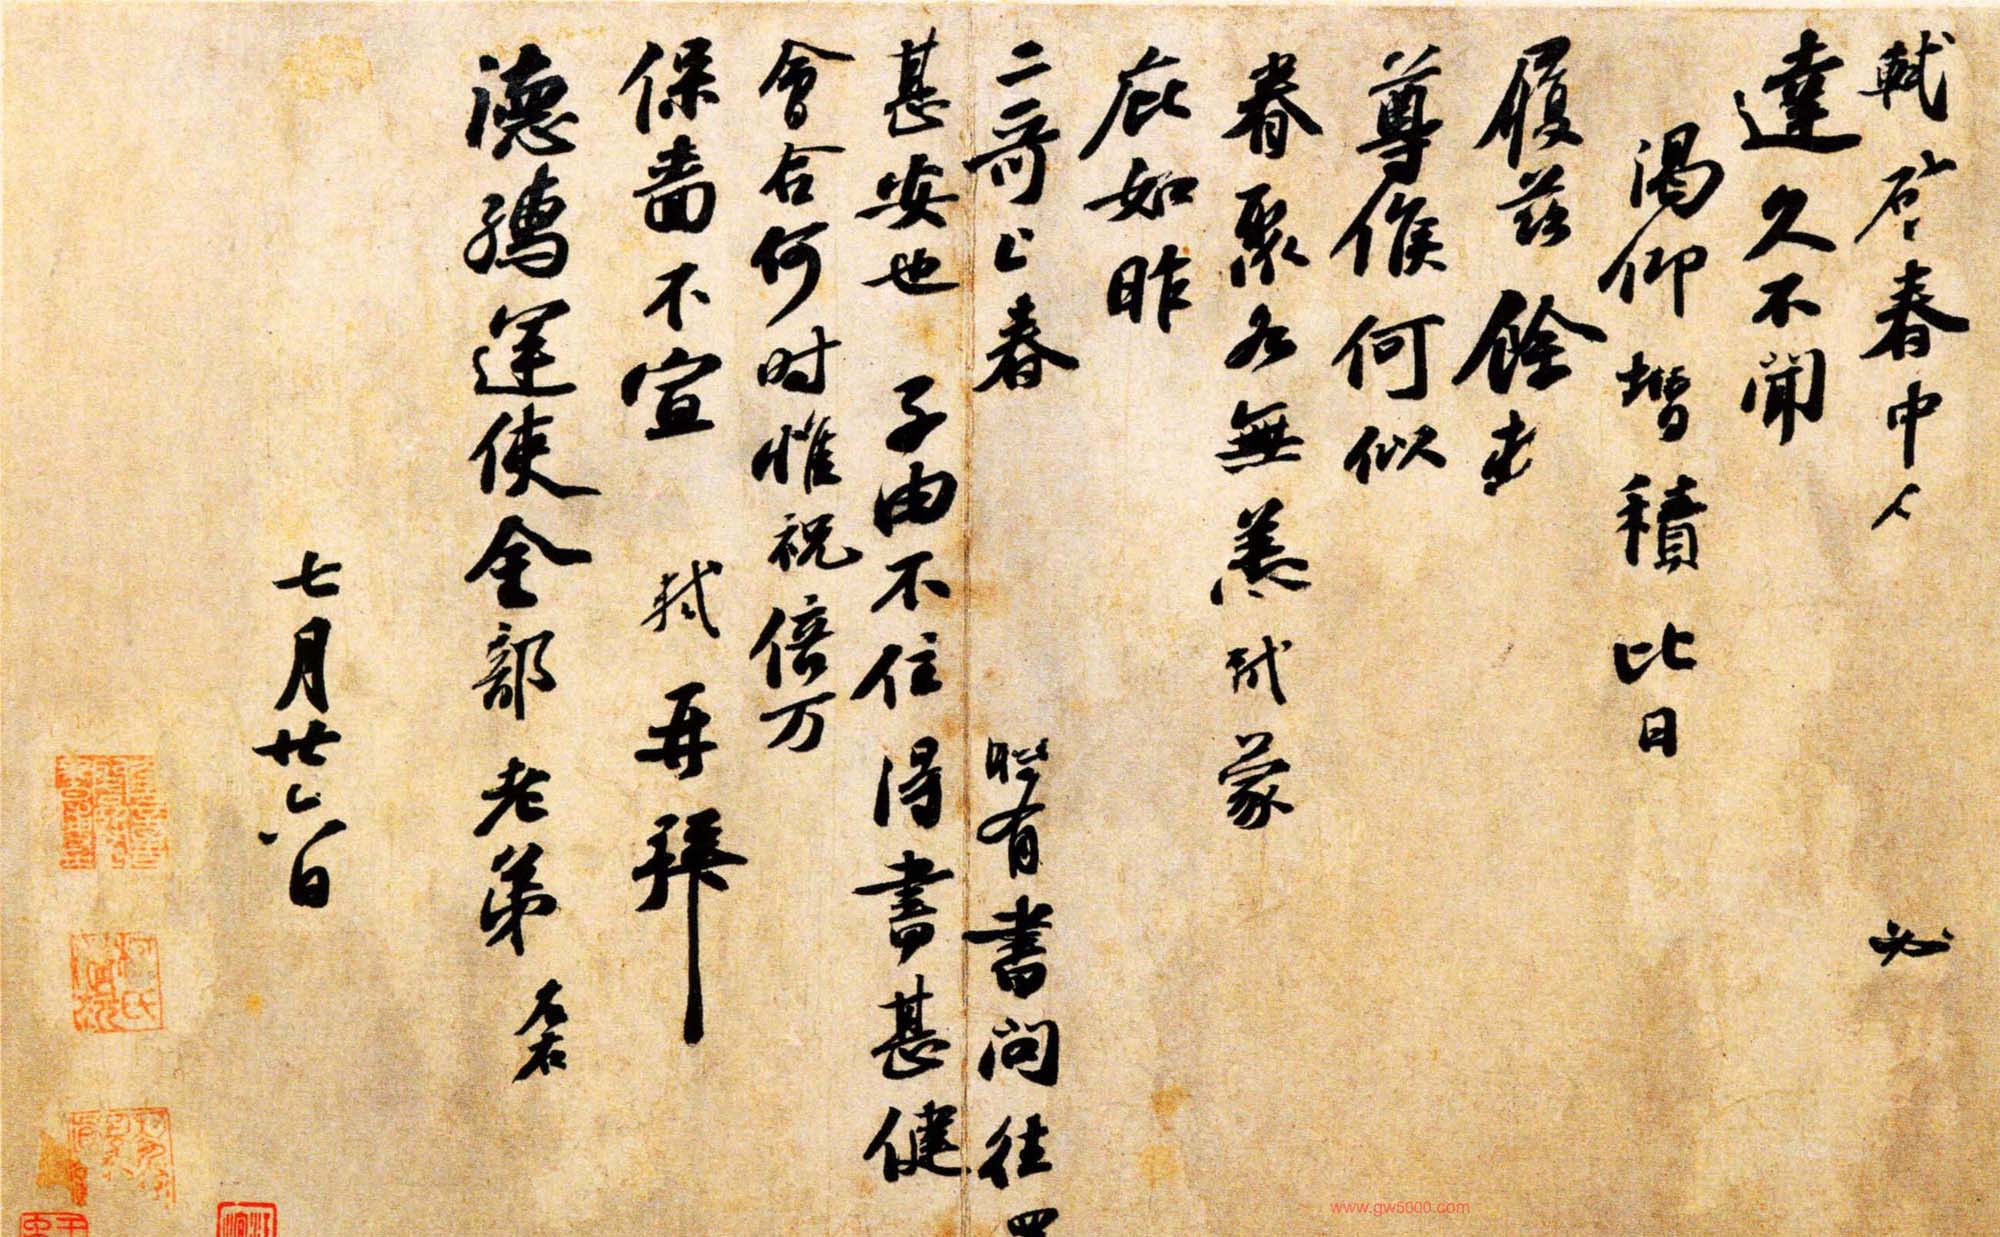 軾啓春中 必
達久不聞
渴仰增積比日
履兹餘
尊候何似
眷聚各無恙軾蒙
庇如昨
二哥上春 時有書問往
甚安也子由不住得書甚健
會合何时惟祝倍万
保嗇不宣軾再拜
德孺運使金部老弟左右
七月廿六日
www.gw5000.com